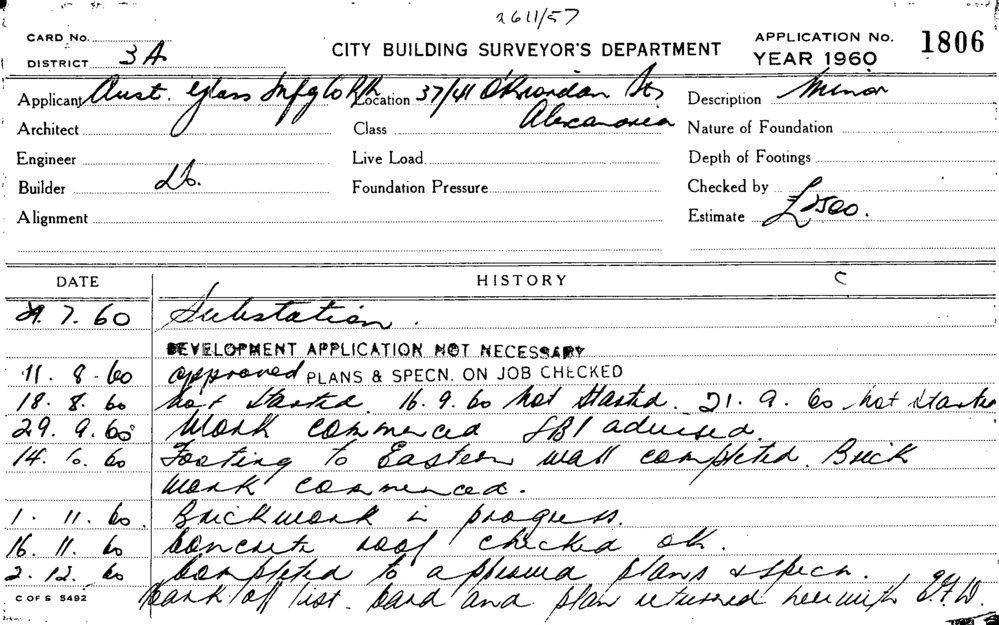 2611/57
CARD No.
DISTRICT 3A
CITY BUILDING SURVEYOR'S DEPARTMENT
APPLICATION No. 1806
YEAR 1960
Applicant Aust. Glass Mfg Co P/L Location 37/41 O'Riordan St, Description Minor
Alexandria
Architect Class Nature of Foundation
Engineer Live Load Depth of Footings
Builder Foundation Pressure Checked by
Alignment Estimate £1500.
DATE HISTORY C
29. 7. 60 Substation.
DEVELOPMENT APPLICATION NOT NECESSARY
11. 8. 60 approved PLANS & SPECN. ON JOB CHECKED
18. 8. 60 not started. 16. 9. 60 not started. 21. 9. 60 not started
29. 9. 60 Work commenced advised.
14. 10. 60 Footing to Eastern wall completed. Brick
work commenced.
1. 11. 60. Brickwork in progress.
16. 11. 60 Concrete roof checked OK.
2. 12. 60 Completed to approved plans & specn.
C OF S S492 mark off list. Card and plan returned herewith